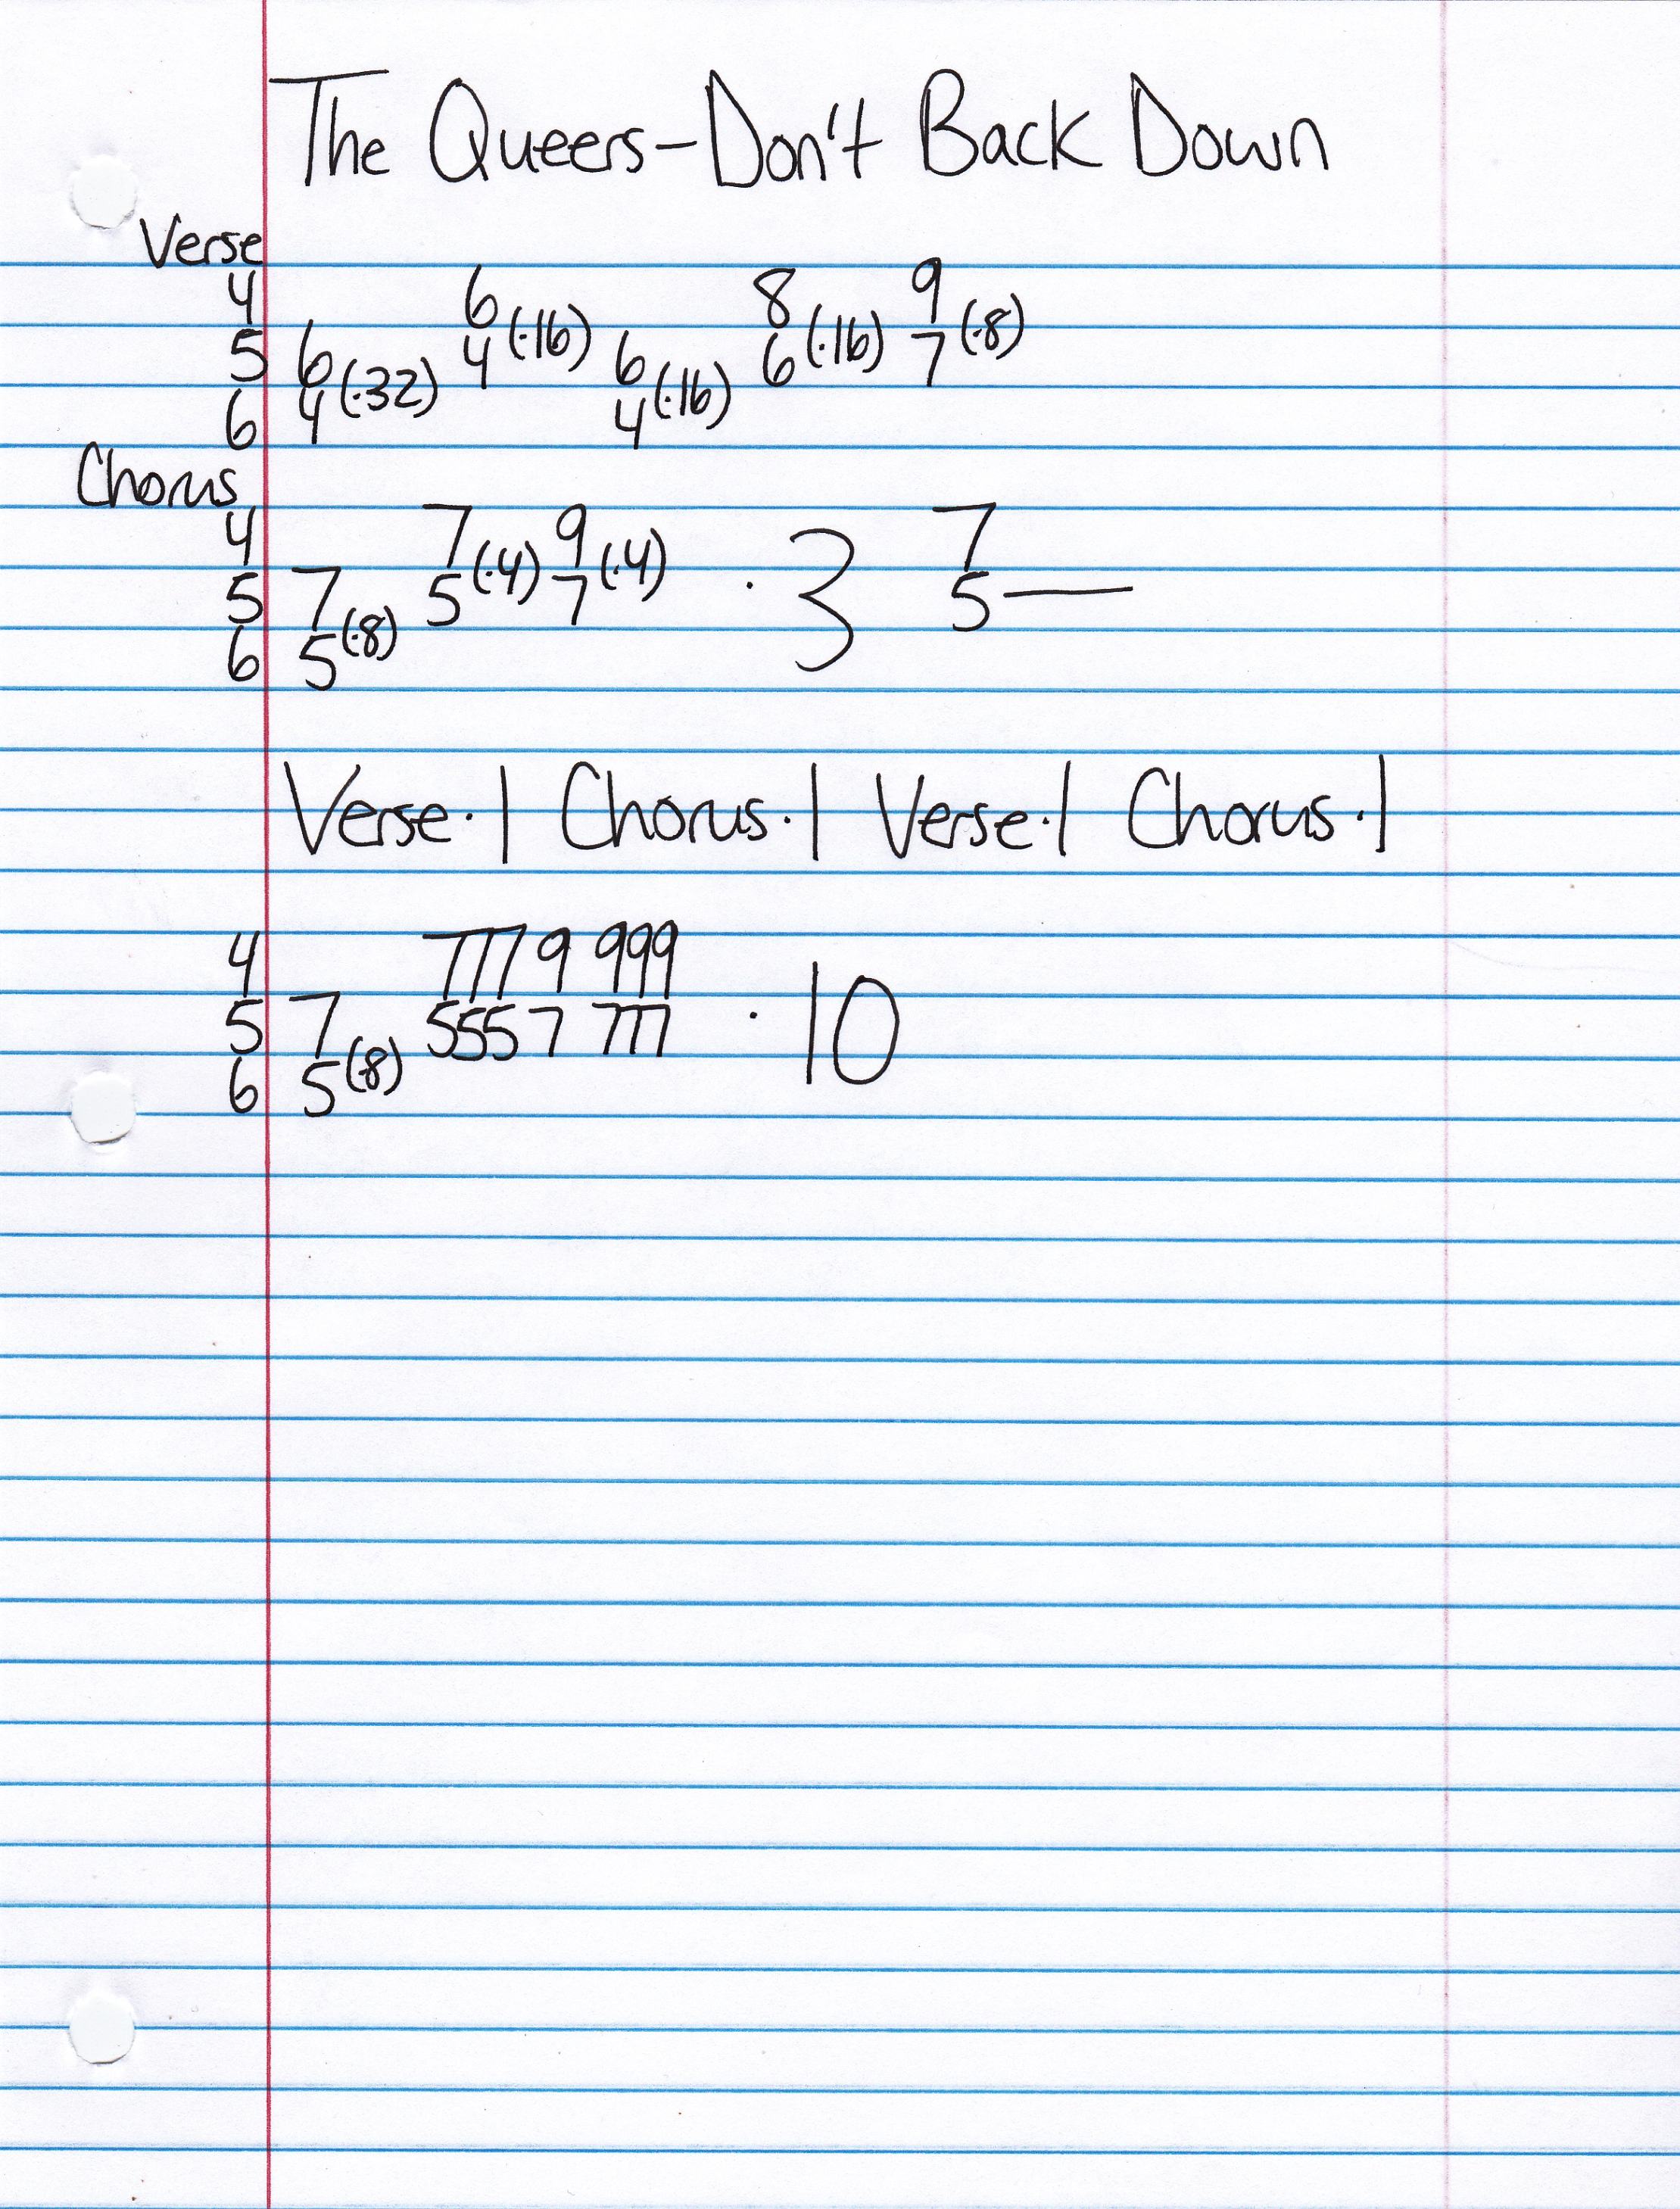 The Queers-Don't Back Down
Verse
4 6 8 9
5 6 4 (·16) 6 6 (·16) 7 (·8)
6 4 (·32) 4 (·16)
Chorus
4 7 9 7
5 7 5 (·4) 7 (·4) · 3 5—
6 5 (·8)
Verse·1 Chorus·1 Verse·1 Chorus·1
4 777 9 999
5 7 555 7 777 · 10
6 5 (·8)